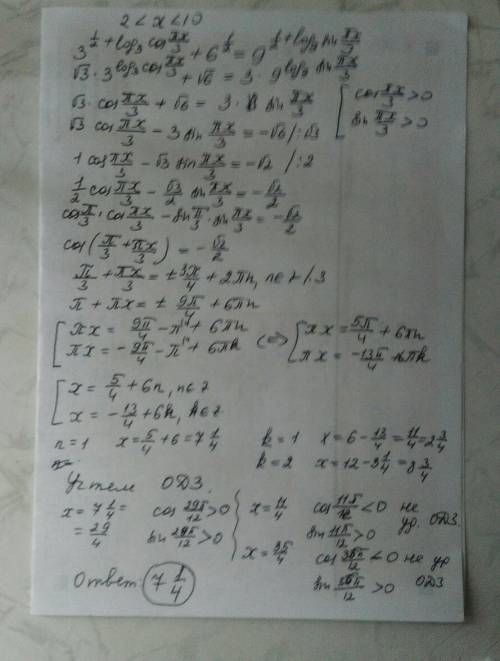 2 < x < 10
3^(1/2 + log₃ cos πx/3) + 6^(1/2) = 9^(1/2 + log₉ sin πx/3)
√3 · 3^(log₃ cos πx/3) + √6 = 3 · 9^(log₉ sin πx/3)
√3 · cos πx/3 + √6 = 3 · sin πx/3 [ cos πx/3 > 0
√3 cos πx/3 − 3 sin πx/3 = −√6 /:√3 sin πx/3 > 0
1 cos πx/3 − √3 sin πx/3 = −√2 /:2
1/2 cos πx/3 − √3/2 sin πx/3 = −√2/2
cos π/3 · cos πx/3 − sin π/3 · sin πx/3 = −√2/2
cos(π/3 + πx/3) = −√2/2
π/3 + πx/3 = ± 3π/4 + 2πn, n∈z /·3
π + πx = ± 9π/4 + 6πn
[ πx = 9π/4 − π + 6πn <=> [ πx = 5π/4 + 6πn
πx = −9π/4 − π + 6πk πx = −13π/4 + 6πk
[ x = 5/4 + 6n, n∈z
x = −13/4 + 6k, k∈z
n = 1 x = 5/4 + 6 = 7 1/4 k = 1 x = 6 − 13/4 = 11/4 = 2 3/4
k = 2 x = 12 − 3 1/4 = 8 3/4
Учтем ОДЗ.
x = 7 1/4 = cos 29π/12 > 0 { x = 11/4 cos 11π/12 < 0 не уд. ОДЗ
= 29/4 sin 29π/12 > 0 sin 11π/12 > 0
x = 35/4 cos 35π/12 < 0 не уд
Ответ: 7 1/4 sin 35π/12 > 0 ОДЗ